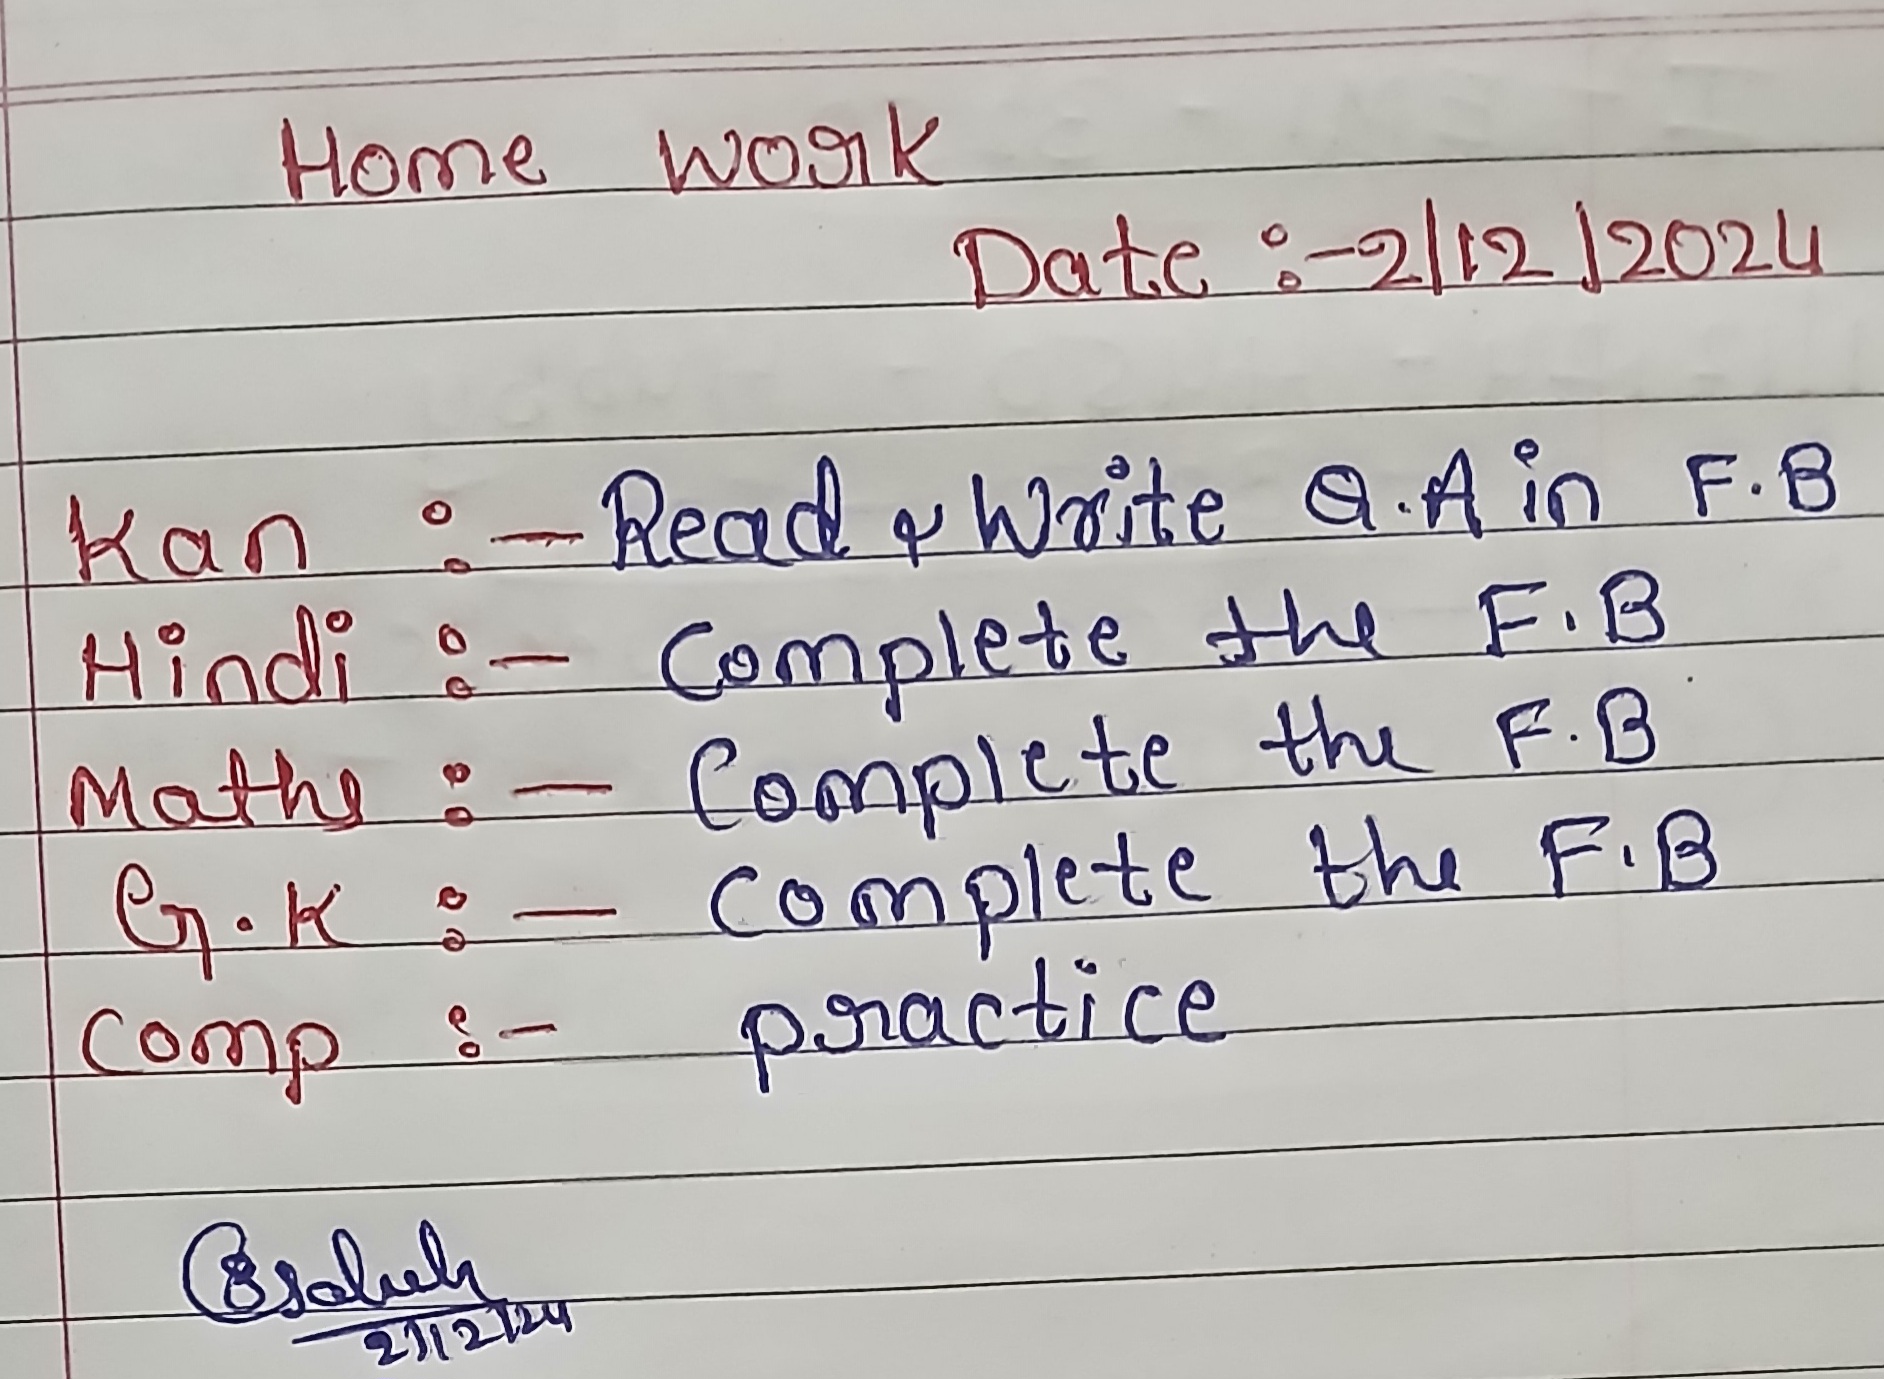 Home Work
Date :-2/12/2024
Kan :- Read & Write Q.A in F.B
Hindi :- Complete the F.B
Maths :- Complete the F.B
G.K :- Complete the F.B
Comp :- practice
2/12/24